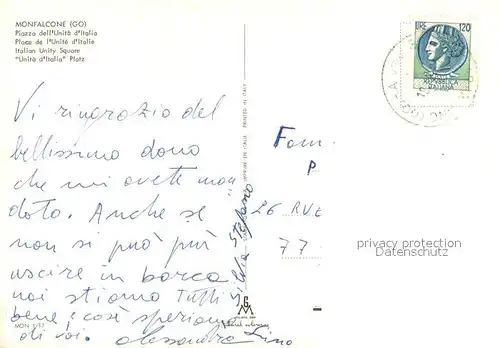 MONFALCONE (GO)
Piazza dell'Unità d'Italia
Place de l'Unité d'Italie
Italian Unity Square
"Unità d'Italia" Platz
LIRE 120
REPUBBLICA
ITALIANA
Vi ringrazio del
bellissimo dono
che mi avete man
dato. Anche se
non si può più
uscire in barca
noi stiamo tutti
bene; così speriamo
di voi. Alessandra Lino
Silvia Stefano
PRINTED IN ITALY
MON 1/17
Fam.
P
26 RUE
77
privacy protection
Datenschutz